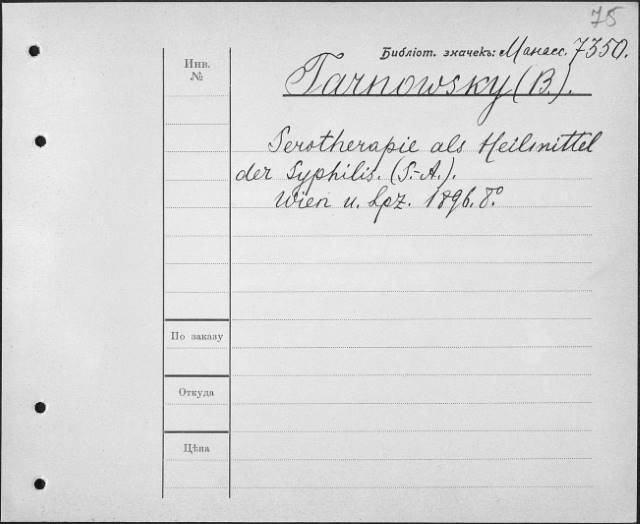 75
Библіот. значекъ: Манасс. 7350.
Инв.
№
Tarnowsky (B.).
Serotherapie als Heilmittel
der Syphilis. (S.-A.).
Wien u. Lpz. 1896. 8°.
По заказу
Откуда
Цѣна